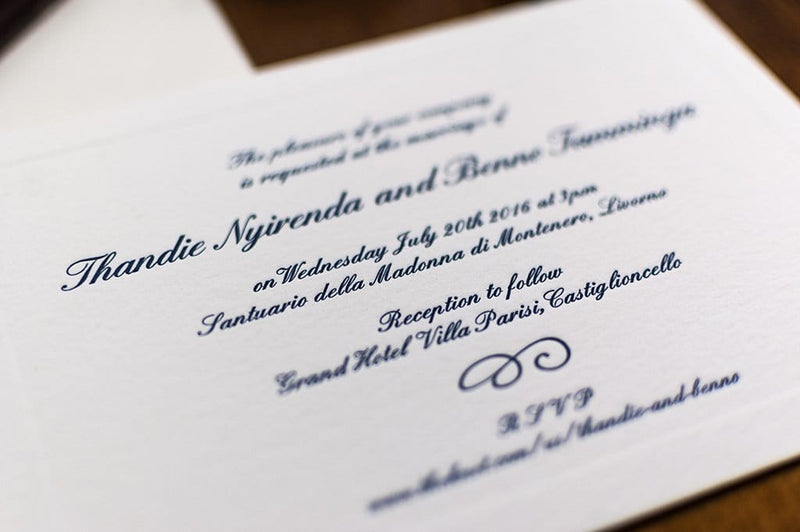 The pleasure of your company
is requested at the marriage of
Thandie Nyirenda and Benno Tamminga
on Wednesday July 20th 2016 at 3pm
Santuario della Madonna di Montenero, Livorno
Reception to follow
Grand Hotel Villa Parisi, Castiglioncello
R S V P
/thandie-and-benno